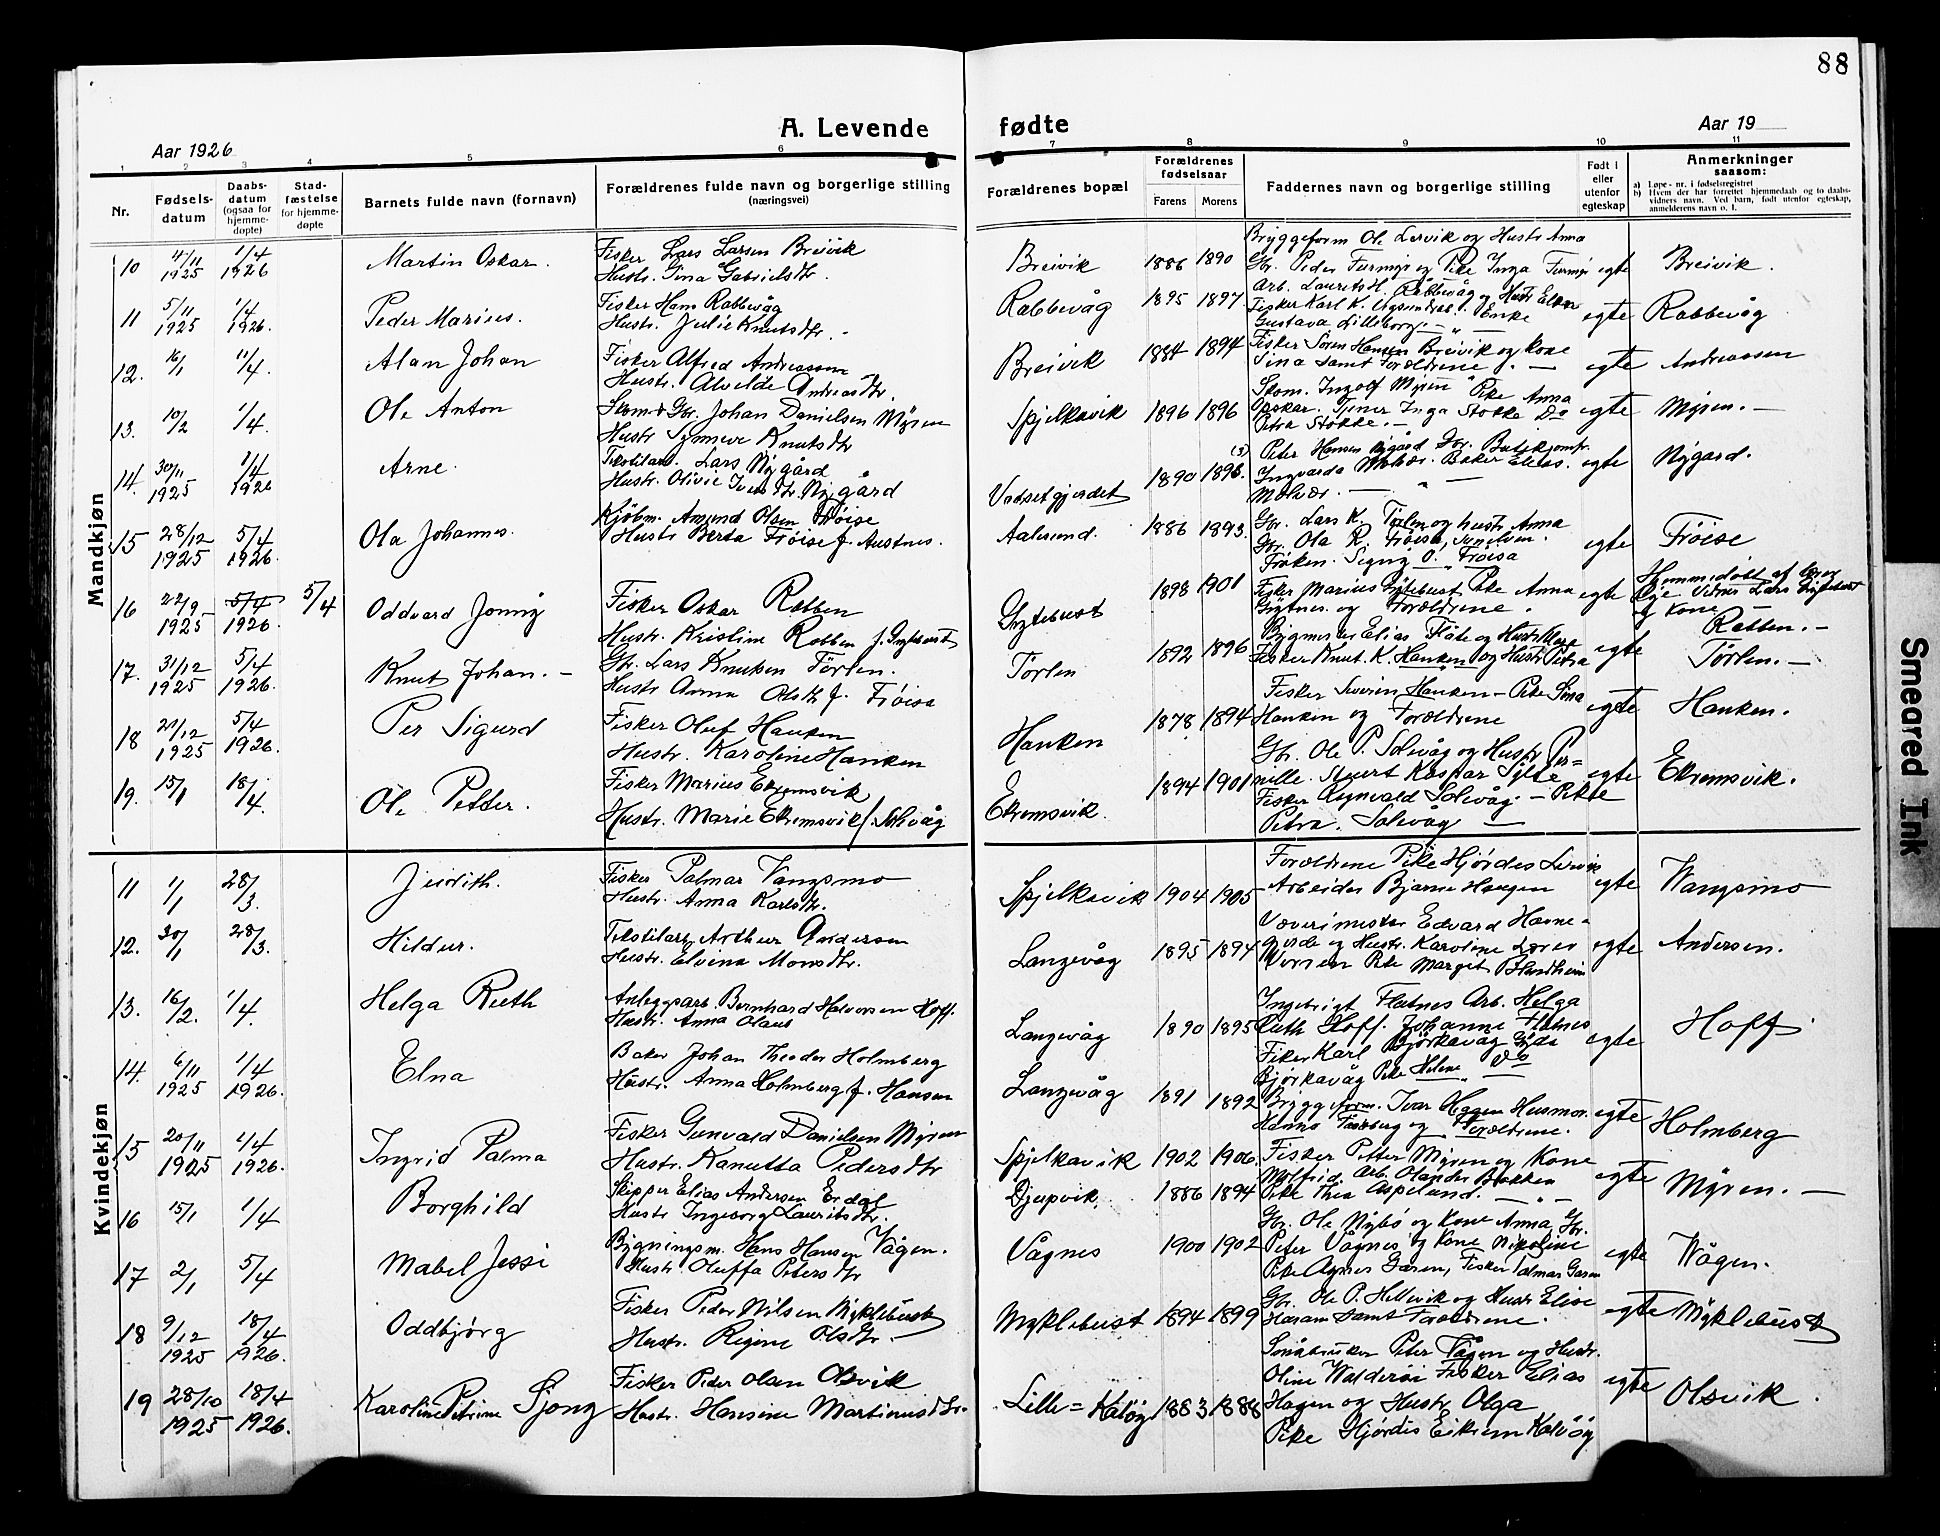 88
A. Levende fødte
Aar 1926
Aar 19
1 2 3 4 5 6 7 8 9 10 11
Nr.
Fødsels-datum
Daabs-datum (ogsaa for hjemme-døpte)
Stad-fæstelse for hjemme-døpte
Barnets fulde navn (fornavn)
Forældrenes fulde navn og borgerlige stilling (næringsvei)
Forældrenes bopæl
Forældrenes fødselsaar
Farens Morens
Faddernes navn og borgerlige stilling
Født i eller utenfor egteskap
Anmerkninger saasom:
a) Løpe-nr. i fødselsregistret
b) Hvem der har forrettet hjemmedaab og to daabs-vidners navn. Ved barn, født utenfor egteskap, anmelderens navn o. l.
Mandkjøn
10 4/11 1925 1/4 1926 Martin Oskar.
Fisker Lars Larsen Breivik
Hustr. Gina Gabrielsdtr.
Breivik 1886 1890
Bryggeform Ole Lervik og Hustr Anna
Gbr. Peder Furmyr og Pike Inga Furmyr
egte Breivik.
11 5/11 1925 1/4 1926. Peder Marius.
Fisker Hans Rabbevåg
Hustr. Julie Knutsdtr.
Rabbevåg 1895 1897
Arb. Laurits H. Rabbevåg og Hustr
Fisker Karl K. Enke
Gustava Lilleborg
egte Rabbevåg
12. 16/1 11/4. Alan Johan
Fisker Alfred Andreassen
Hustr. Alvilde Andreasdtr.
Breivik 1884 1894
Fisker Søren Hansen Breivik og kone
Sina samt Forældrene.
egte Andreassen
13. 10/2 1/4. Ole Anton
Skom & Gbr. Johan Danielsen Myren
Hustr Synneve Knutsdtr
Spjelkavik 1896 1896
Skom. Ingolf Myren Pike Anna
Tjener Inga Stokke Do
Petra Stokke.
egte Myren.
14. 30/11 1925 1/4 1926 Arne.
Tekstilarb. Lars Nygård
Hustr. Olivie Iversdtr. Nygård
Vadsetgjerdet 1890 1896.
Peter Hansen Nygård Gbr.
Ingvarda Molvær. Baker Elias.
Molvær.
egte Nygard.
15 28/12 1925 5/4 1926. Ola Johannes.
Kjøbm. Amund Olsen Frøise
Hustr Berta Frøise f. Austnes.
Aalesund. 1886 1893.
Gbr. Lars K. Tørlen og hustr Anna
Gbr. Ola R. Frøisa,
Frøken. Sigrig O. Frøisa
egte Frøise
16 22/9 1925 5/4 1926. 5/4 Oddvard Jonny
Fisker Oskar Røtten
Hustr. Kristine Røbben f. Gytebust
Gytebust 1898 1901
Fisker Marius Gytebust Pike Anna
Gjøtnes. og Forældrene.
egte Hjemmedøbt af
Vidner Lars Gytebust
og Kone
Røtten.
17. 31/12 1925 5/4 1926. Knut Johan.
Gbr. Lars Knutsen Tørlen.
Hustr Anna Olsdtr f. Frøisa
Tørlen 1892 1896
Bygmester Elias Flåte og Hustr
Fisker Knut K. Hanken og Hustr Petra
egte Tørlen.
18 21/12 1925 5/4 1926. Per Sigurd
Fisker Oluf Hanken
Hustr. Karoline Hanken
Hanken 1878 1894
Fisker Severin Hanken Pike Sina
Hanken og Forældrene
egte Hanken.
19. 15/1 18/4 Ole Petter.
Fisker Marius Ekremsvik
Hustr. Marie Ekremsvik f. Solevåg
Ekremsvik. 1894 1901
Gbr. Ole P. Solevåg og Hustr Per-
nille. Stuert Kaspar Sylte
Fisker Rognvald Solevåg. Pike
Petra. Solevåg
egte Ekremsvik.
Kvindekjøn
11 1/1 28/3. Judith.
Fisker Palmar Vangsmo
Hustr. Anna Karlsdtr.
Spjelkavik 1904 1905
Forældrene Pike Hjørdes Lervik
Arbeider Bjarne Haugen
egte Wangsmo
12. 30/1 28/3. Hildur.
Tekstilarb Arthur Andersen
Hustr. Elvina Monsdtr.
Langevåg 1895 1894
Væverimester Edvard Havne-
gjerde og Hustr. Karoline Lærer
Pike Marget Blindheim
egte Andersen.
13. 16/2. 1/4. Helga Ruth
Anlegsarb. Bernhard Halvorsen Hoff.
Hustr. Anna Olaus
Langevåg 1890 1895
Ingebrigt Flatnes Arb. Helga
Ruth Hoff. Johanne Flatnes
Fisker Karl Bjørkavåg
Bjørkavåg Pike Helene Do
egte Hoff
14. 6/11 1925 1/4 1926. Elna
Baker Johan Theodor Holmberg
Hustr. Anna Holmberg f. Hansen
Langevåg 1891 1892
Bryggeform. Ivar Husmor
Hanna og Forældrene.
egte Holmberg
15 20/11 1925 1/4 1926. Ingrid Palma
Fisker Gunvald Danielsen Myren
Hustr. Kanutta Pedersdtr
Spjelkavik 1902 1906.
Fisker Petter Myren og Kone
Molfrid. Arb. Olander Brekken
Pike Thea Aspelund.
egte Myren.
16 15/1 1/4 Borghild
Skipper Elias Andersen Erdal
Hustr Ingeborg Lauritsdtr.
Djupvik. 1886 1894
17 2/1 5/4 Mabel Jessi
Bygningsm. Hans Hansen Vågen.
Hustr. Oluffa Petersdtr
Vågnes 1900 1902
Gbr. Ole Nybø og Kone Anna, Gbr.
Peter Vågnes og Kone Nikoline
Pike Agnes Garen, Fisker Palmar Garen
egte Wågen.
18 9/12 1925 18/4 1926. Oddbjørg
Fisker Peder Nilsen Myklebust
Hustr. Regine Olsdtr.
Myklebust 1894 1899
Gbr. Ole P. Hellevik og Hustr Elise
Haram samt Forældrene.
egte Myklebust
19 28/10 1925 18/4 1926. Karoline Petrine Sjong
Fisker Peder Olsen Olsvik
Hustr. Hansine Martinusdtr.
Lille=Kalvøy 1883 1888
Småbruker Peter Vågen og Hustr.
Oline Walderøi Fisker Elias
Hagen og Hustr Olga
Pike Hjørdis Eikrem Kalvøy
egte Olsvik.
Smeared Ink